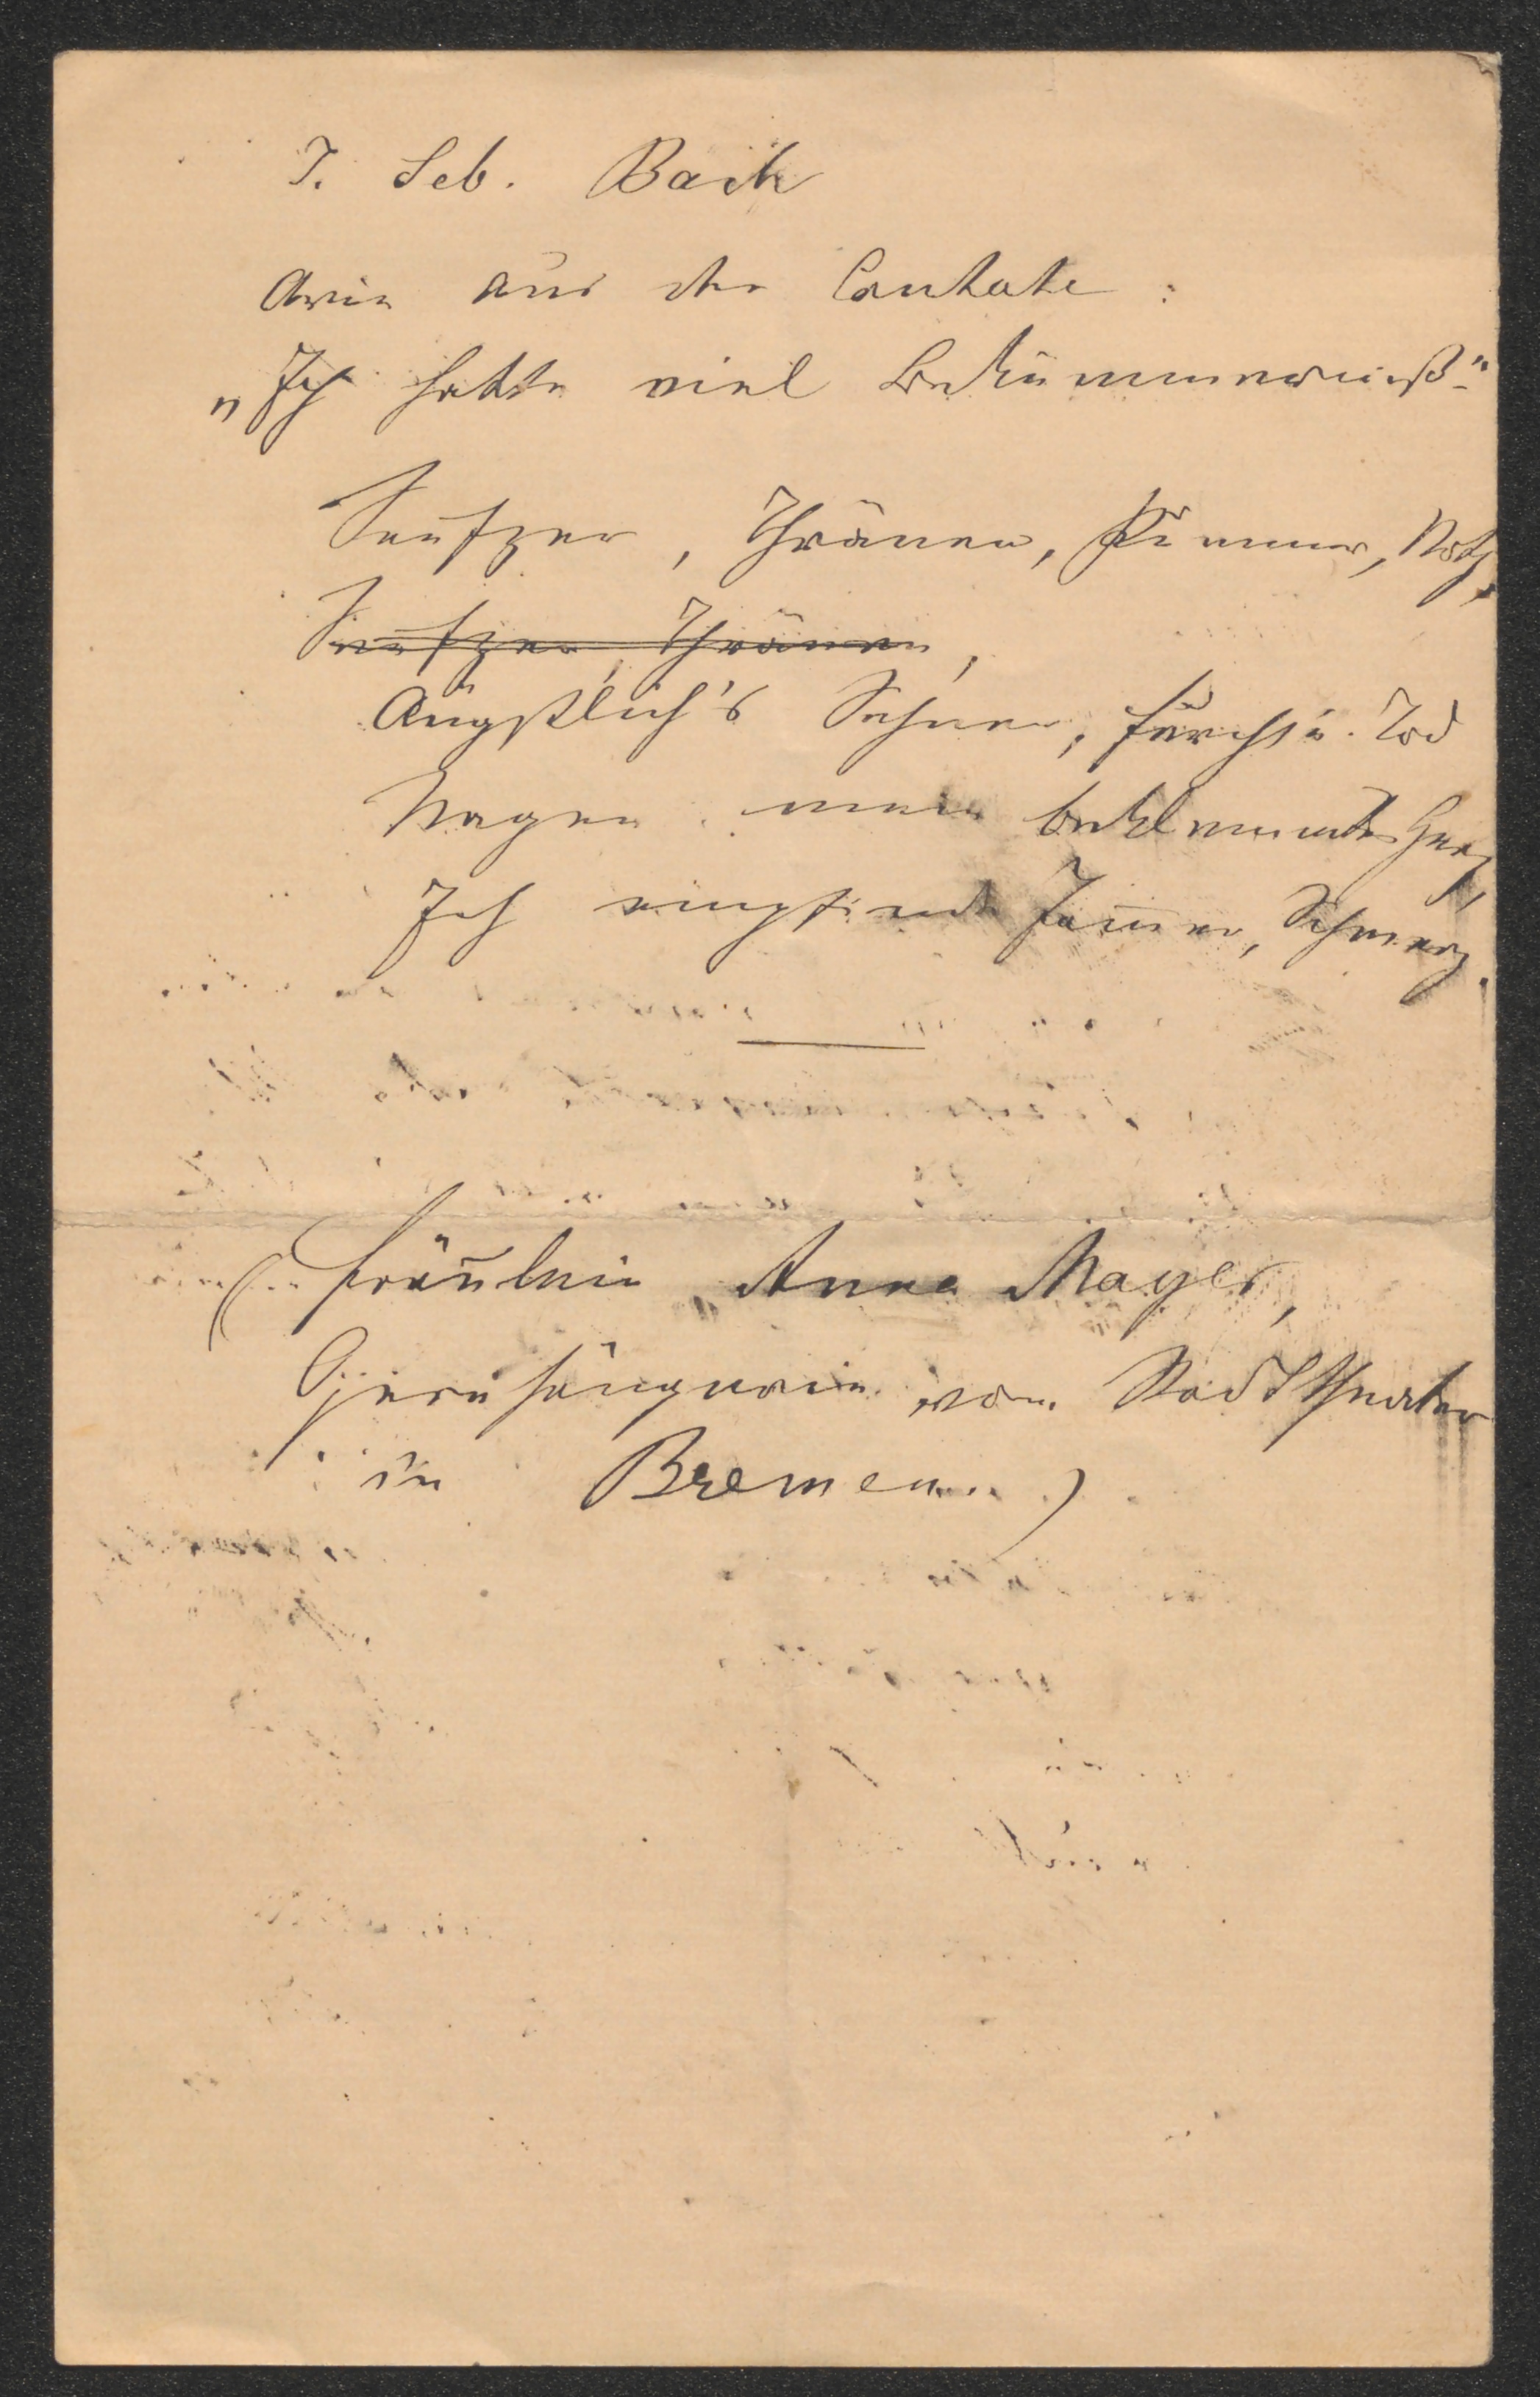 J. Seb. Bach
Arie aus der Cantate:
„Ich hatte viel Bekümmerniß."
Seufzer, Thränen, Kummer, Noth,
Seufzer, Thränen,
Ängstlich's Sehnen, Furcht u. Tod
Nagen mein beklemmtes Herz,
Ich empfinde Jam̅er, Schmerz.
(Fräulein Anna Mayer,
Opernsängerin vom Stadttheater
in Bremen.)